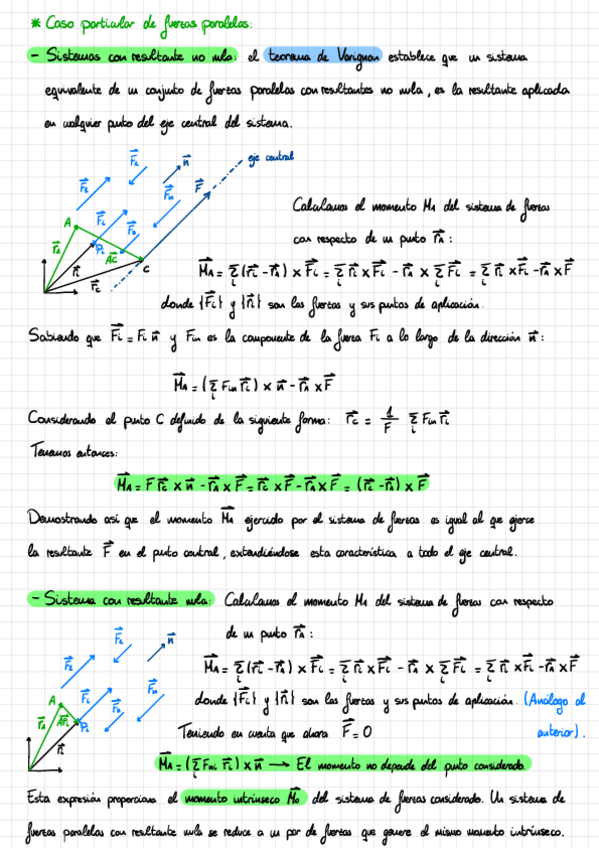 * Caso particular de fuerzas paralelas:
- Sistemas con resultante no nula: el teorema de Varignon establece que un sistema
equivalente de un conjunto de fuerzas paralelas con resultantes no nula, es la resultante aplicada
en cualquier punto del eje central del sistema.
eje central
F₂ F₁ n F
F₂ Fᵢ Fₙ F₃
A Pᵢ AC C
r_A rᵢ r_C
Calculamos el momento M_A del sistema de fuerzas
con respecto de un punto r_A:
M_A = Σᵢ (rᵢ - r_A) × Fᵢ = Σᵢ rᵢ × Fᵢ - r_A × Σᵢ Fᵢ = Σᵢ rᵢ × Fᵢ - r_A × F
donde {Fᵢ} y {rᵢ} son las fuerzas y sus puntos de aplicación.
Sabiendo que Fᵢ = Fᵢ n y Fᵢₙ es la componente de la fuerza Fᵢ a lo largo de la dirección n:
M_A = (Σᵢ Fᵢₙ rᵢ) × n - r_A × F
Considerando el punto C definido de la siguiente forma: r_C = 1/F Σᵢ Fᵢₙ rᵢ
Tenemos entonces:
M_A = F r_C × n - r_A × F = r_C × F - r_A × F = (r_C - r_A) × F
Demostrando así que el momento M_A ejercido por el sistema de fuerzas es igual al que ejerce
la resultante F en el punto central, extendiéndose esta característica a todo el eje central.
- Sistema con resultante nula: Calculamos el momento M_A del sistema de fuerzas con respecto
de un punto r_A:
M_A = Σᵢ (rᵢ - r_A) × Fᵢ = Σᵢ rᵢ × Fᵢ - r_A × Σᵢ Fᵢ = Σᵢ rᵢ × Fᵢ - r_A × F
donde {Fᵢ} y {rᵢ} son las fuerzas y sus puntos de aplicación. (Análogo al
anterior).
Teniendo en cuenta que ahora F = 0
M_A = (Σᵢ Fₙᵢ rᵢ) × n → El momento no depende del punto considerado.
Esta expresión proporciona el momento intrínseco M₀ del sistema de fuerzas considerado. Un sistema de
fuerzas paralelas con resultante nula se reduce a un par de fuerzas que genere el mismo momento intrínseco.